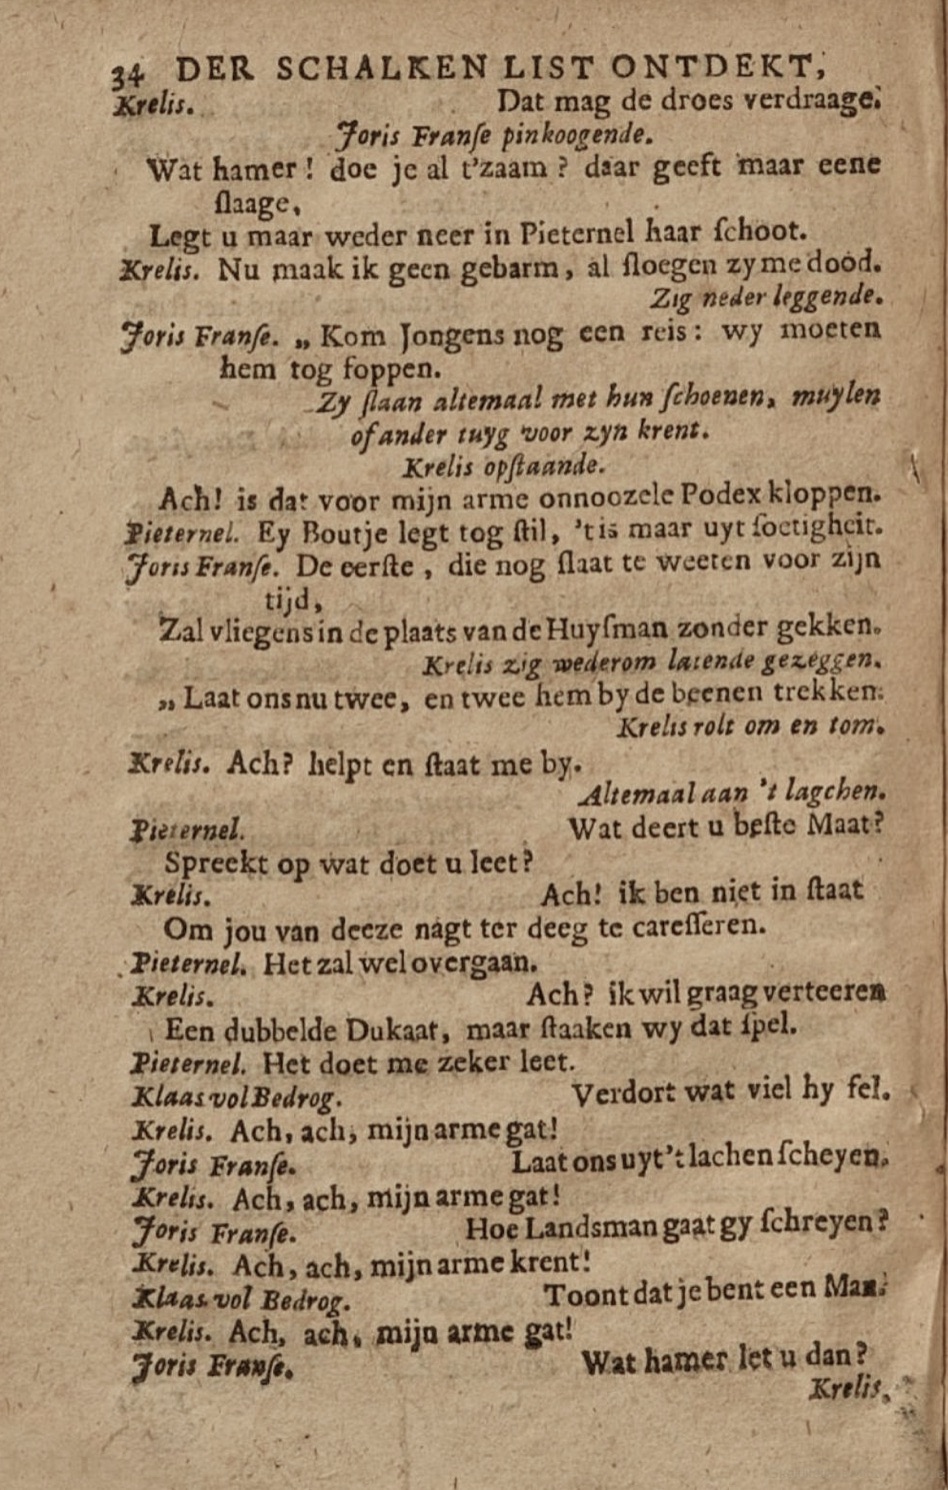 34 DER SCHALKEN LIST ONTDEKT,
Krelis. Dat mag de droes verdraage.
Joris Franſe pinkoogende.
Wat hamer! doe je al t'zaam? daar geeft maar eene
ſlaage,
Legt u maar weder neer in Pieternel haar ſchoot.
Krelis. Nu maak ik geen gebarm, al ſloegen zy me dood.
Zig neder leggende.
Joris Franſe. „ Kom Jongens nog een reis: wy moeten
hem tog foppen.
Zy ſlaan altemaal met hun ſchoenen, muylen
of ander tuyg voor zyn krent.
Krelis opſtaande.
Ach! is dat voor mijn arme onnoozele Podex kloppen.
Pieternel. Ey Boutje legt tog ſtil, 't is maar uyt ſoetigheit.
Joris Franſe. De eerſte, die nog ſlaat te weeten voor zijn
tijd,
Zal vliegens in de plaats van de Huyſman zonder gekken.
Krelis zig wederom latende gezeggen.
„ Laat ons nu twee, en twee hem by de beenen trekken.
Krelis rolt om en tom.
Krelis. Ach? helpt en ſtaat me by.
Altemaal aan 't lagchen.
Pieternel. Wat deert u beſte Maat?
Spreekt op wat doet u leet?
Krelis. Ach! ik ben niet in ſtaat
Om jou van deeze nagt ter deeg te careſſeren.
Pieternel. Het zal wel overgaan.
Krelis. Ach? ik wil graag verteeren
Een dubbelde Dukaat, maar ſtaaken wy dat ſpel.
Pieternel. Het doet me zeker leet.
Klaas vol Bedrog. Verdort wat viel hy fel.
Krelis. Ach, ach, mijn arme gat!
Joris Franſe. Laat ons uyt 't lachen ſcheyen.
Krelis. Ach, ach, mijn arme gat!
Joris Franſe. Hoe Landsman gaat gy ſchreyen?
Krelis. Ach, ach, mijn arme krent!
Klaas vol Bedrog. Toont dat je bent een Man.
Krelis. Ach, ach, mijn arme gat!
Joris Franſe. Wat hamer let u dan?
Krelis,